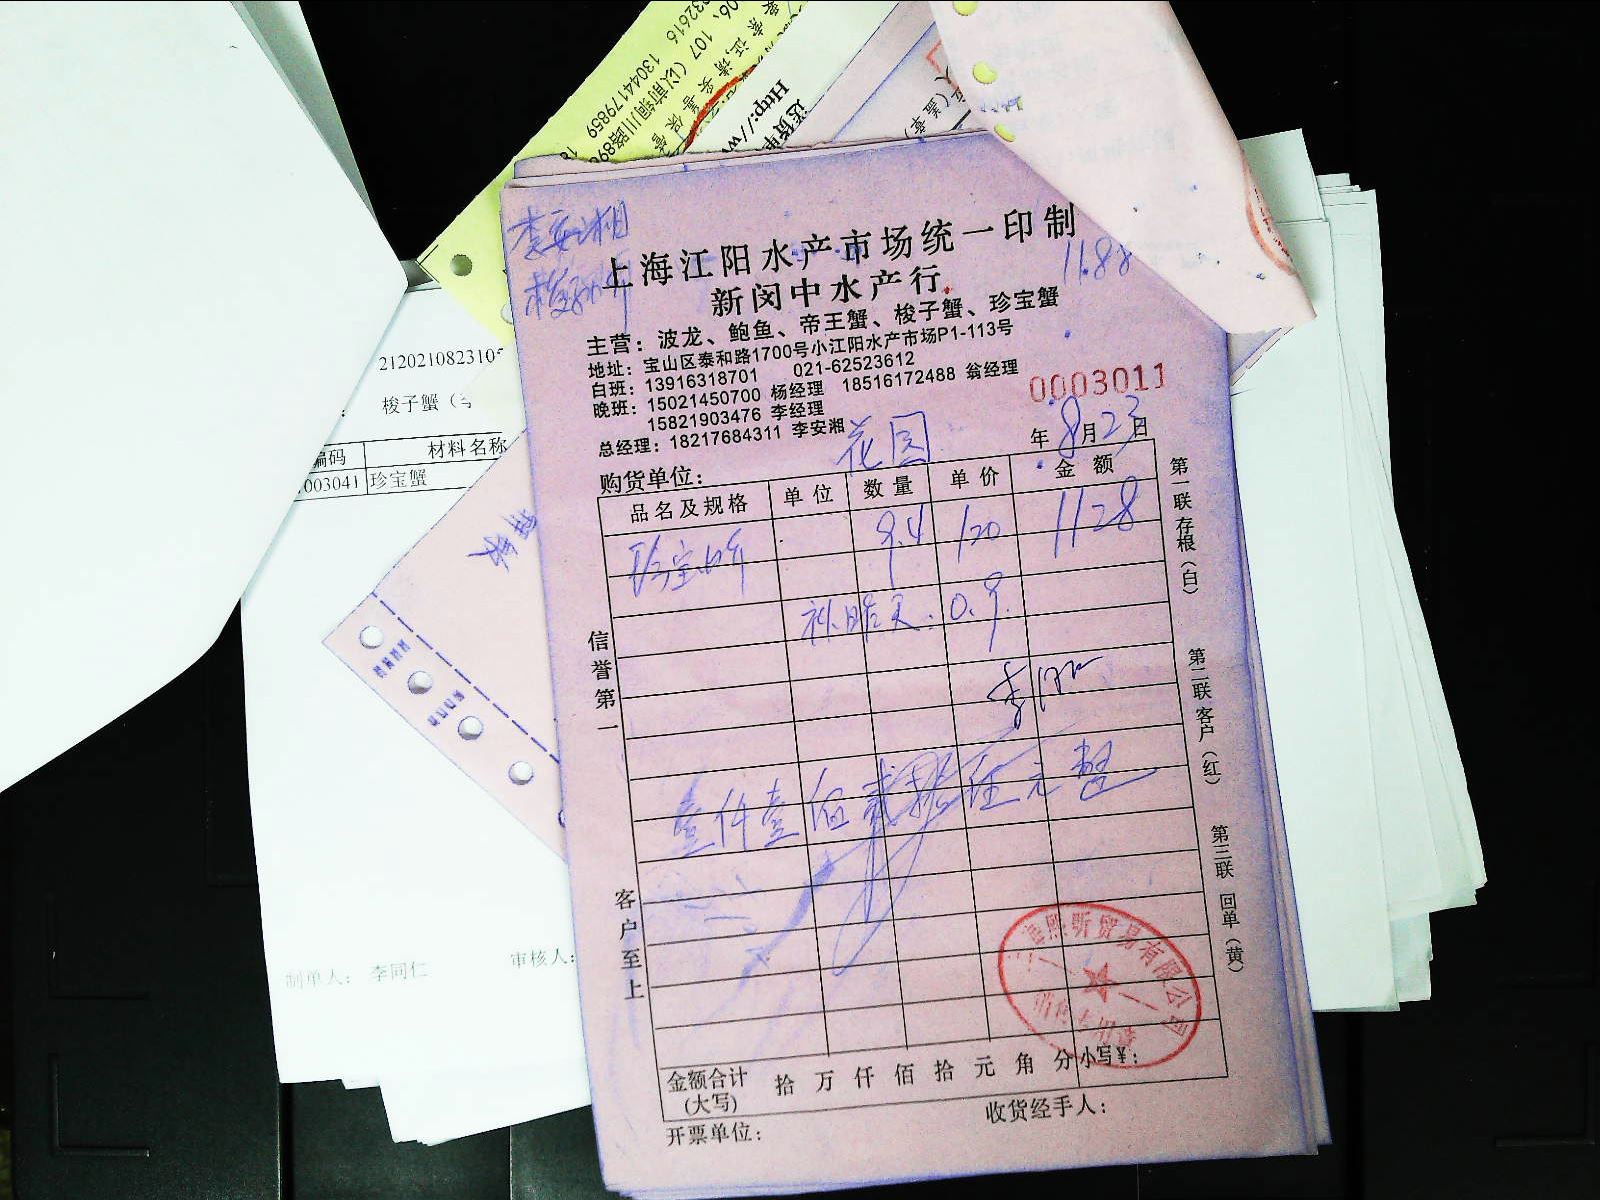 107（以前铜川路896
13044179859
要索证,请妥善保管
送货单
Http://w
人(盖章)
李安湘
1188
上海江阳水产市场统一印制
新闵中水产行
主营：波龙、鲍鱼、帝王蟹、梭子蟹、珍宝蟹
地址：宝山区泰和路1700号小江阳水产市场P1-113号
白班：13916318701 021-62523612
晚班：15021450700 杨经理 18516172488 翁经理
15821903476 李经理
总经理：18217684311 李安湘
0003011
购货单位： 花园
年 8月23日
品名及规格 单位 数量 单价 金额
珍宝蟹 9.4 120 1128
补昨天.0.9
壹仟壹佰贰拾 元整
信誉第一
客户至上
第一联 存根（白）
第二联 客户（红）
第三联 回单（黄）
熙昕贸易有限公司
金额合计(大写) 拾 万 仟 佰 拾 元 角 分 小写¥：
开票单位： 收货经手人：
212021082310
梭子蟹（
编码 材料名称
003041 珍宝蟹
制单人： 李同仁 审核人：